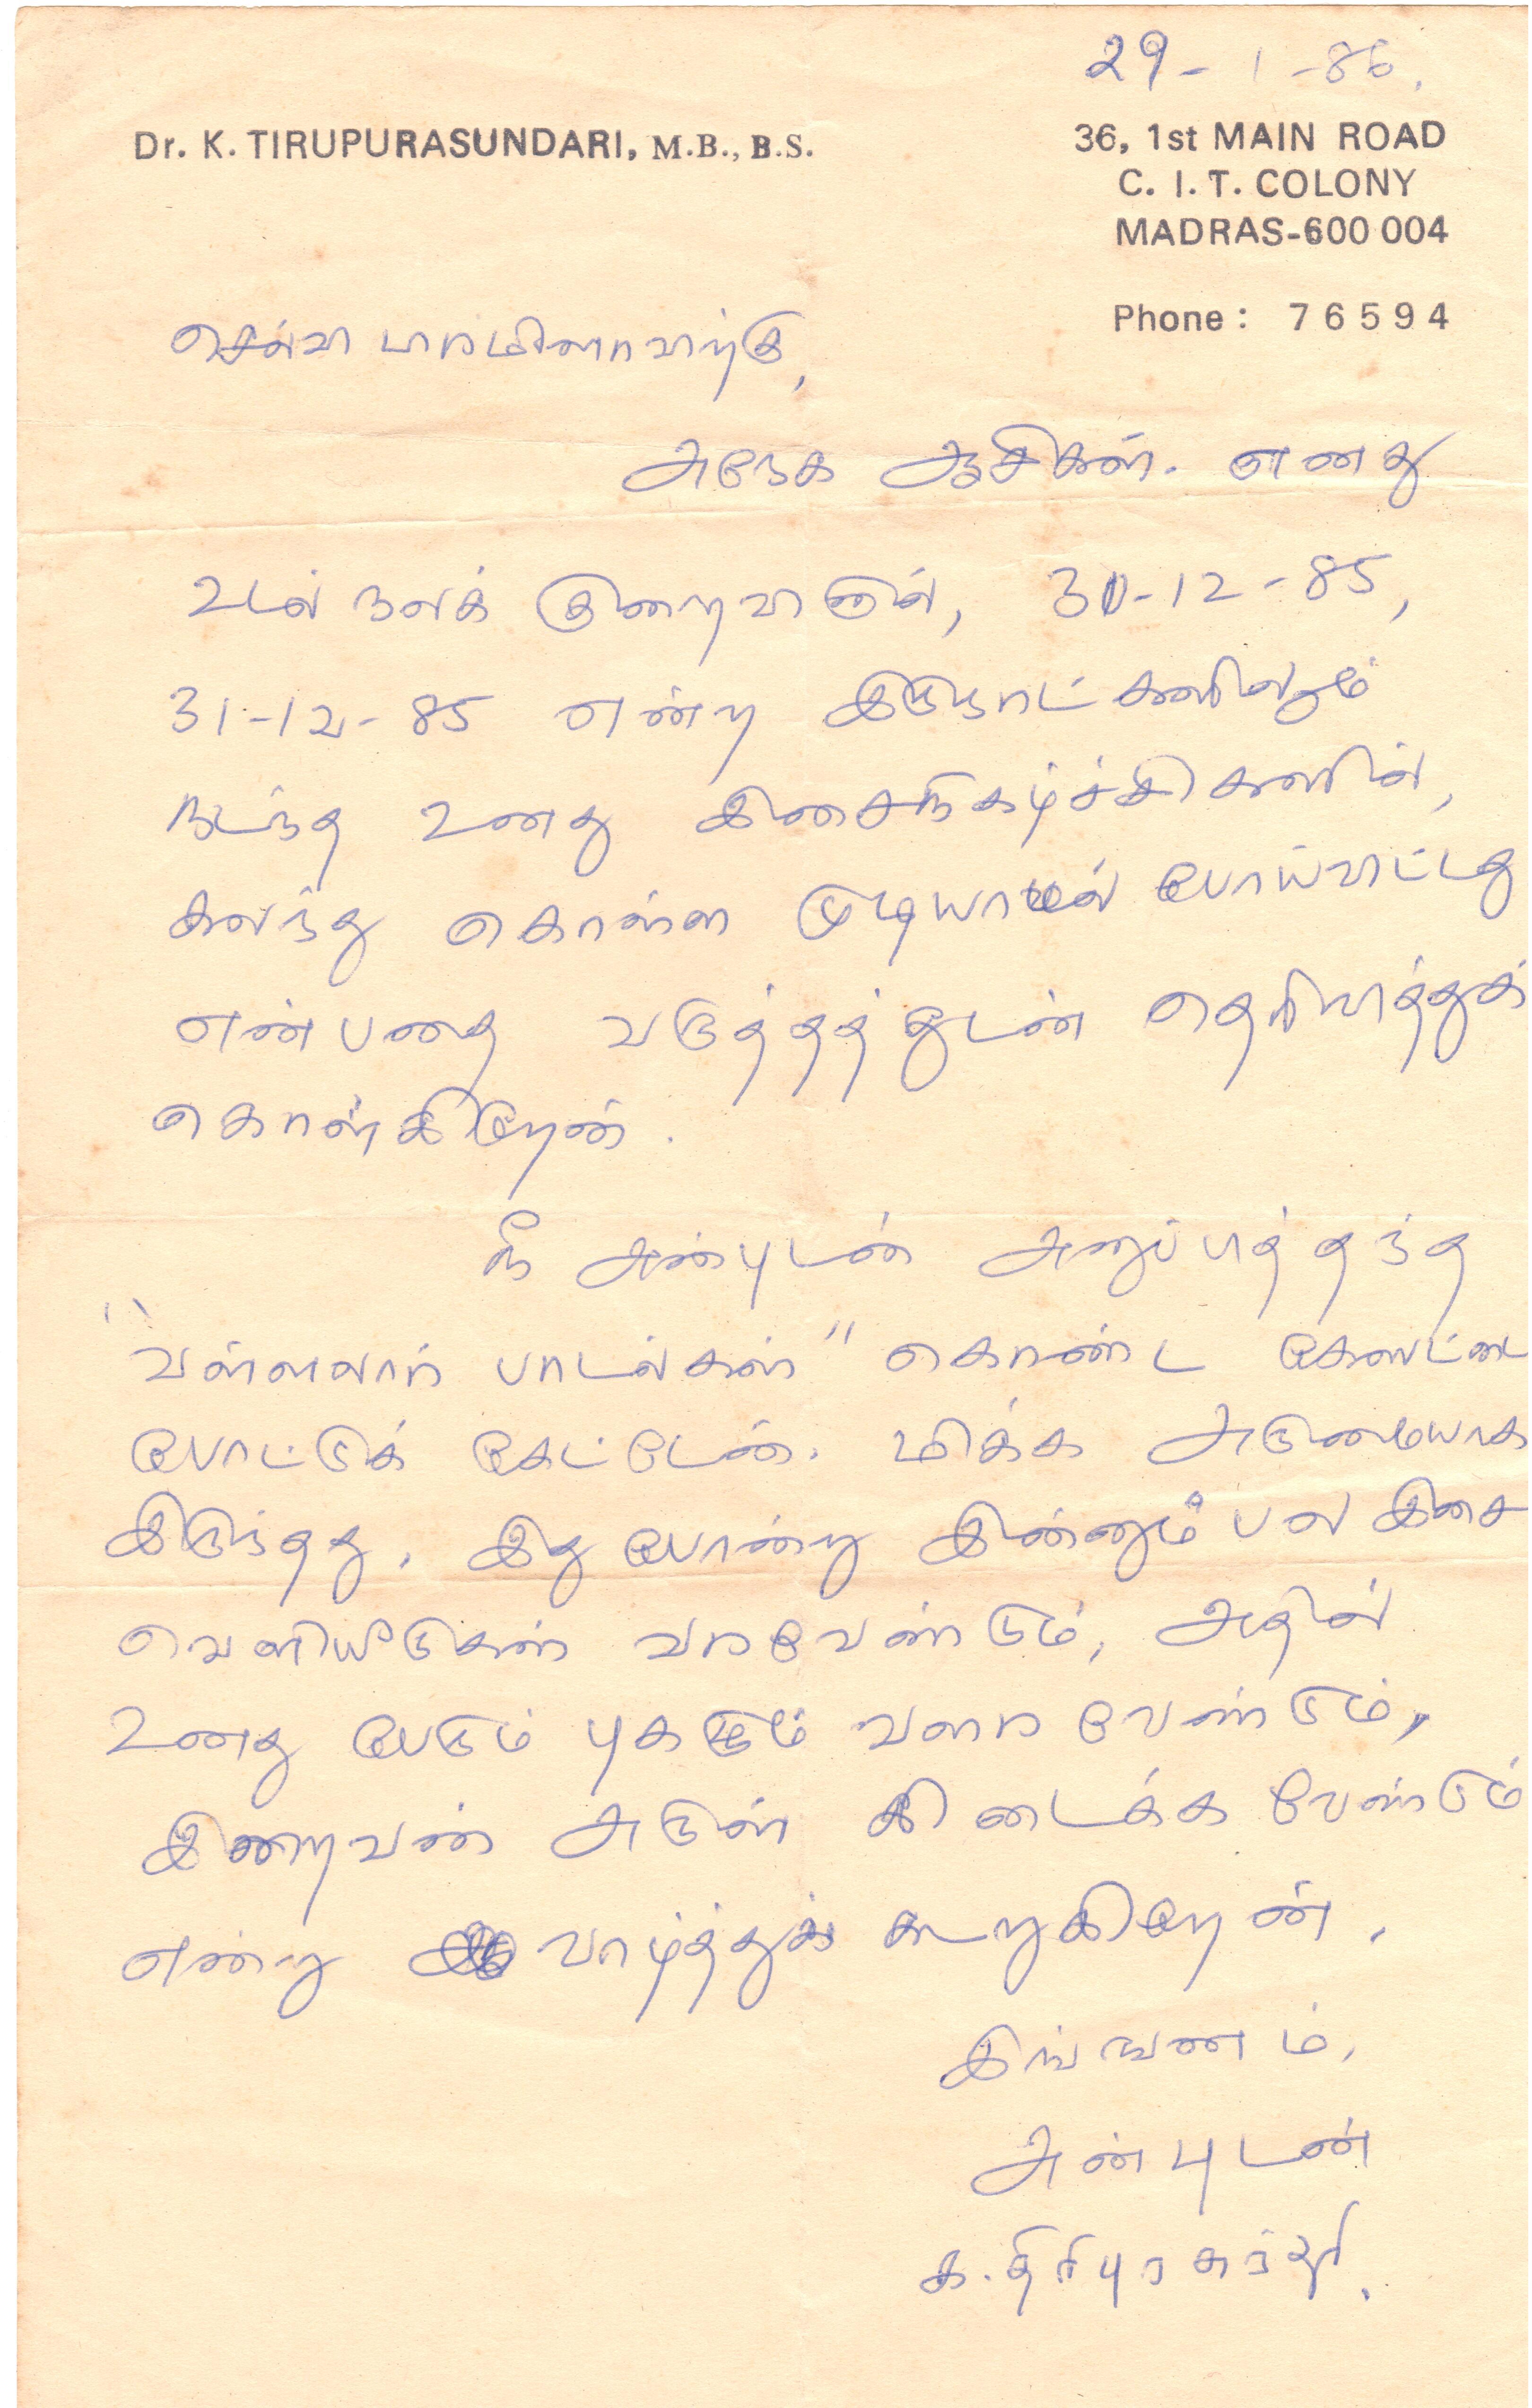 29-1-86.
Dr. K. TIRUPURASUNDARI, M.B., B.S.
36, 1st MAIN ROAD
C. I. T. COLONY
MADRAS-600 004
Phone : 76594
செல்வி
அநேக ஆசிகள். எனது
உடல் நலக் குறைவினால், 30-12-85,
31-12-85 என்ற இருநாட்களிலும்
நடந்த உனது இசைநிகழ்ச்சிகளில்,
கலந்து கொள்ள முடியாமல் போய்விட்டது
என்பதை வருத்தத்துடன் தெரிவித்துக்
கொள்கிறேன்.
நீ அன்புடன் அனுப்பித் தந்த
"வள்ளலார் பாடல்கள்" கொண்ட கேஸட்டை
போட்டுக் கேட்டேன். மிக்க அருமையாக
இருந்தது. இது போன்று இன்னும் பல இசை
வெளியீடுகள் வரவேண்டும், அதில்
உனது பேரும் புகழும் வளர வேண்டும்,
இறைவன் அருள் கிடைக்க வேண்டும்
என்று வாழ்த்துக் கூறுகிறேன்.
இங்ஙனம்,
அன்புடன்
க. திரிபுரசுந்தரி.